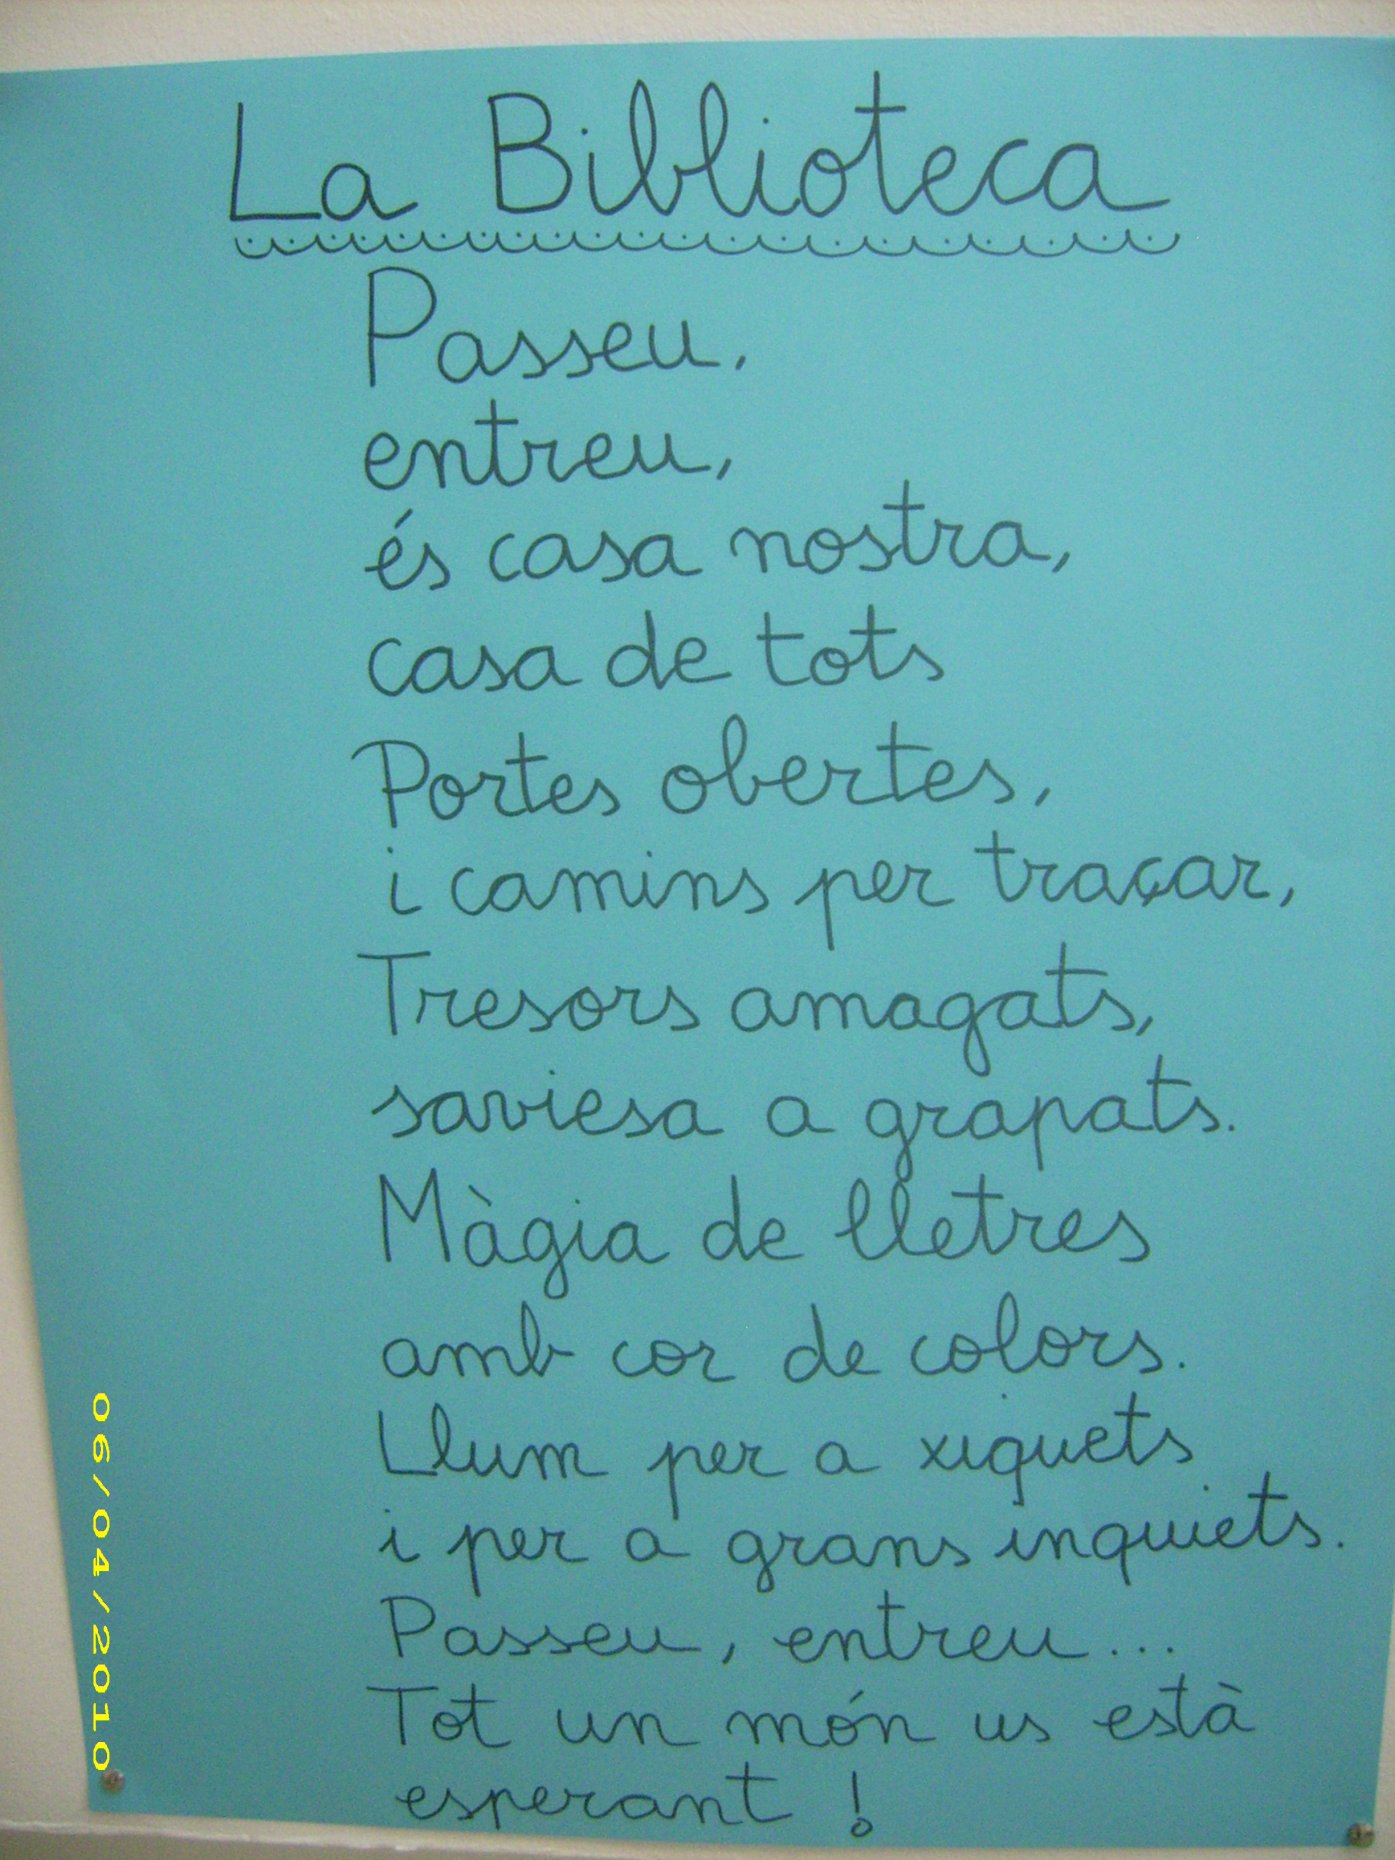 La Biblioteca
Passeu,
entreu,
és casa nostra,
casa de tots
Portes obertes,
i camins per traçar,
Tresors amagats,
saviesa a grapats.
Màgia de lletres
amb cor de colors.
Llum per a xiquets
i per a grans inquiets.
Passeu, entreu...
Tot un món us està
esperant !
06/04/2010